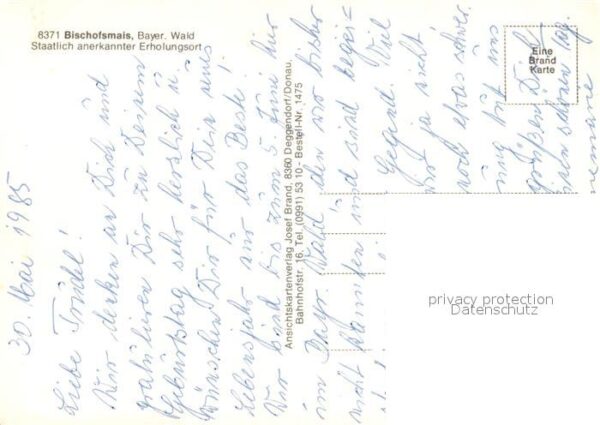 8371 Bischofsmais, Bayer. Wald
Staatlich anerkannter Erholungsort
Eine
Brand
Karte
Ansichtskartenverlag Josef Brand, 8360 Deggendorf/Donau,
Bahnhofstr. 16, Tel. (0991) 53 10 - Bestell-Nr. 1475
30. Mai 1985
Liebe Trudel!
Wir denken an Dich und
gratulieren Dir zu Deinem
Geburtstag sehr herzlich u.
wünschen Dir für Dein neues
Lebensjahr nur das Beste!
Wir sind bis zum 5. Juni hier
im Bayr. Wald den wir bisher
nicht kannten und sind begei-
Gegend. Viel
wir ja nicht
noch etwas schwer
und
grüßen Dich
schönen Tag.
privacy protection
Datenschutz